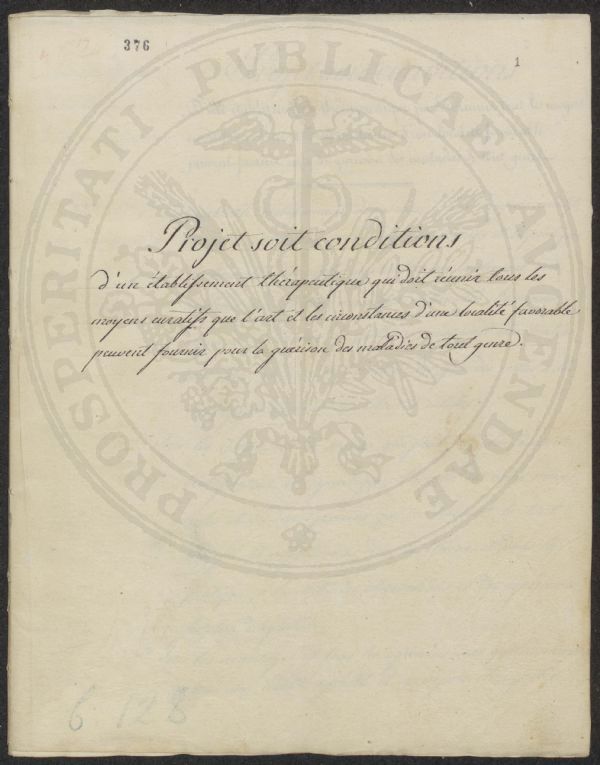 376
1
PROSPERITATI PVBLICAE AVGENDAE
Projet soit conditions
d'un établissement thérapeutique qui doit réunir tous les
moyens curatifs que l'art et les circonstances d'une localité favorable
peuvent fournir pour la guérison des maladies de tout genre.
6 128